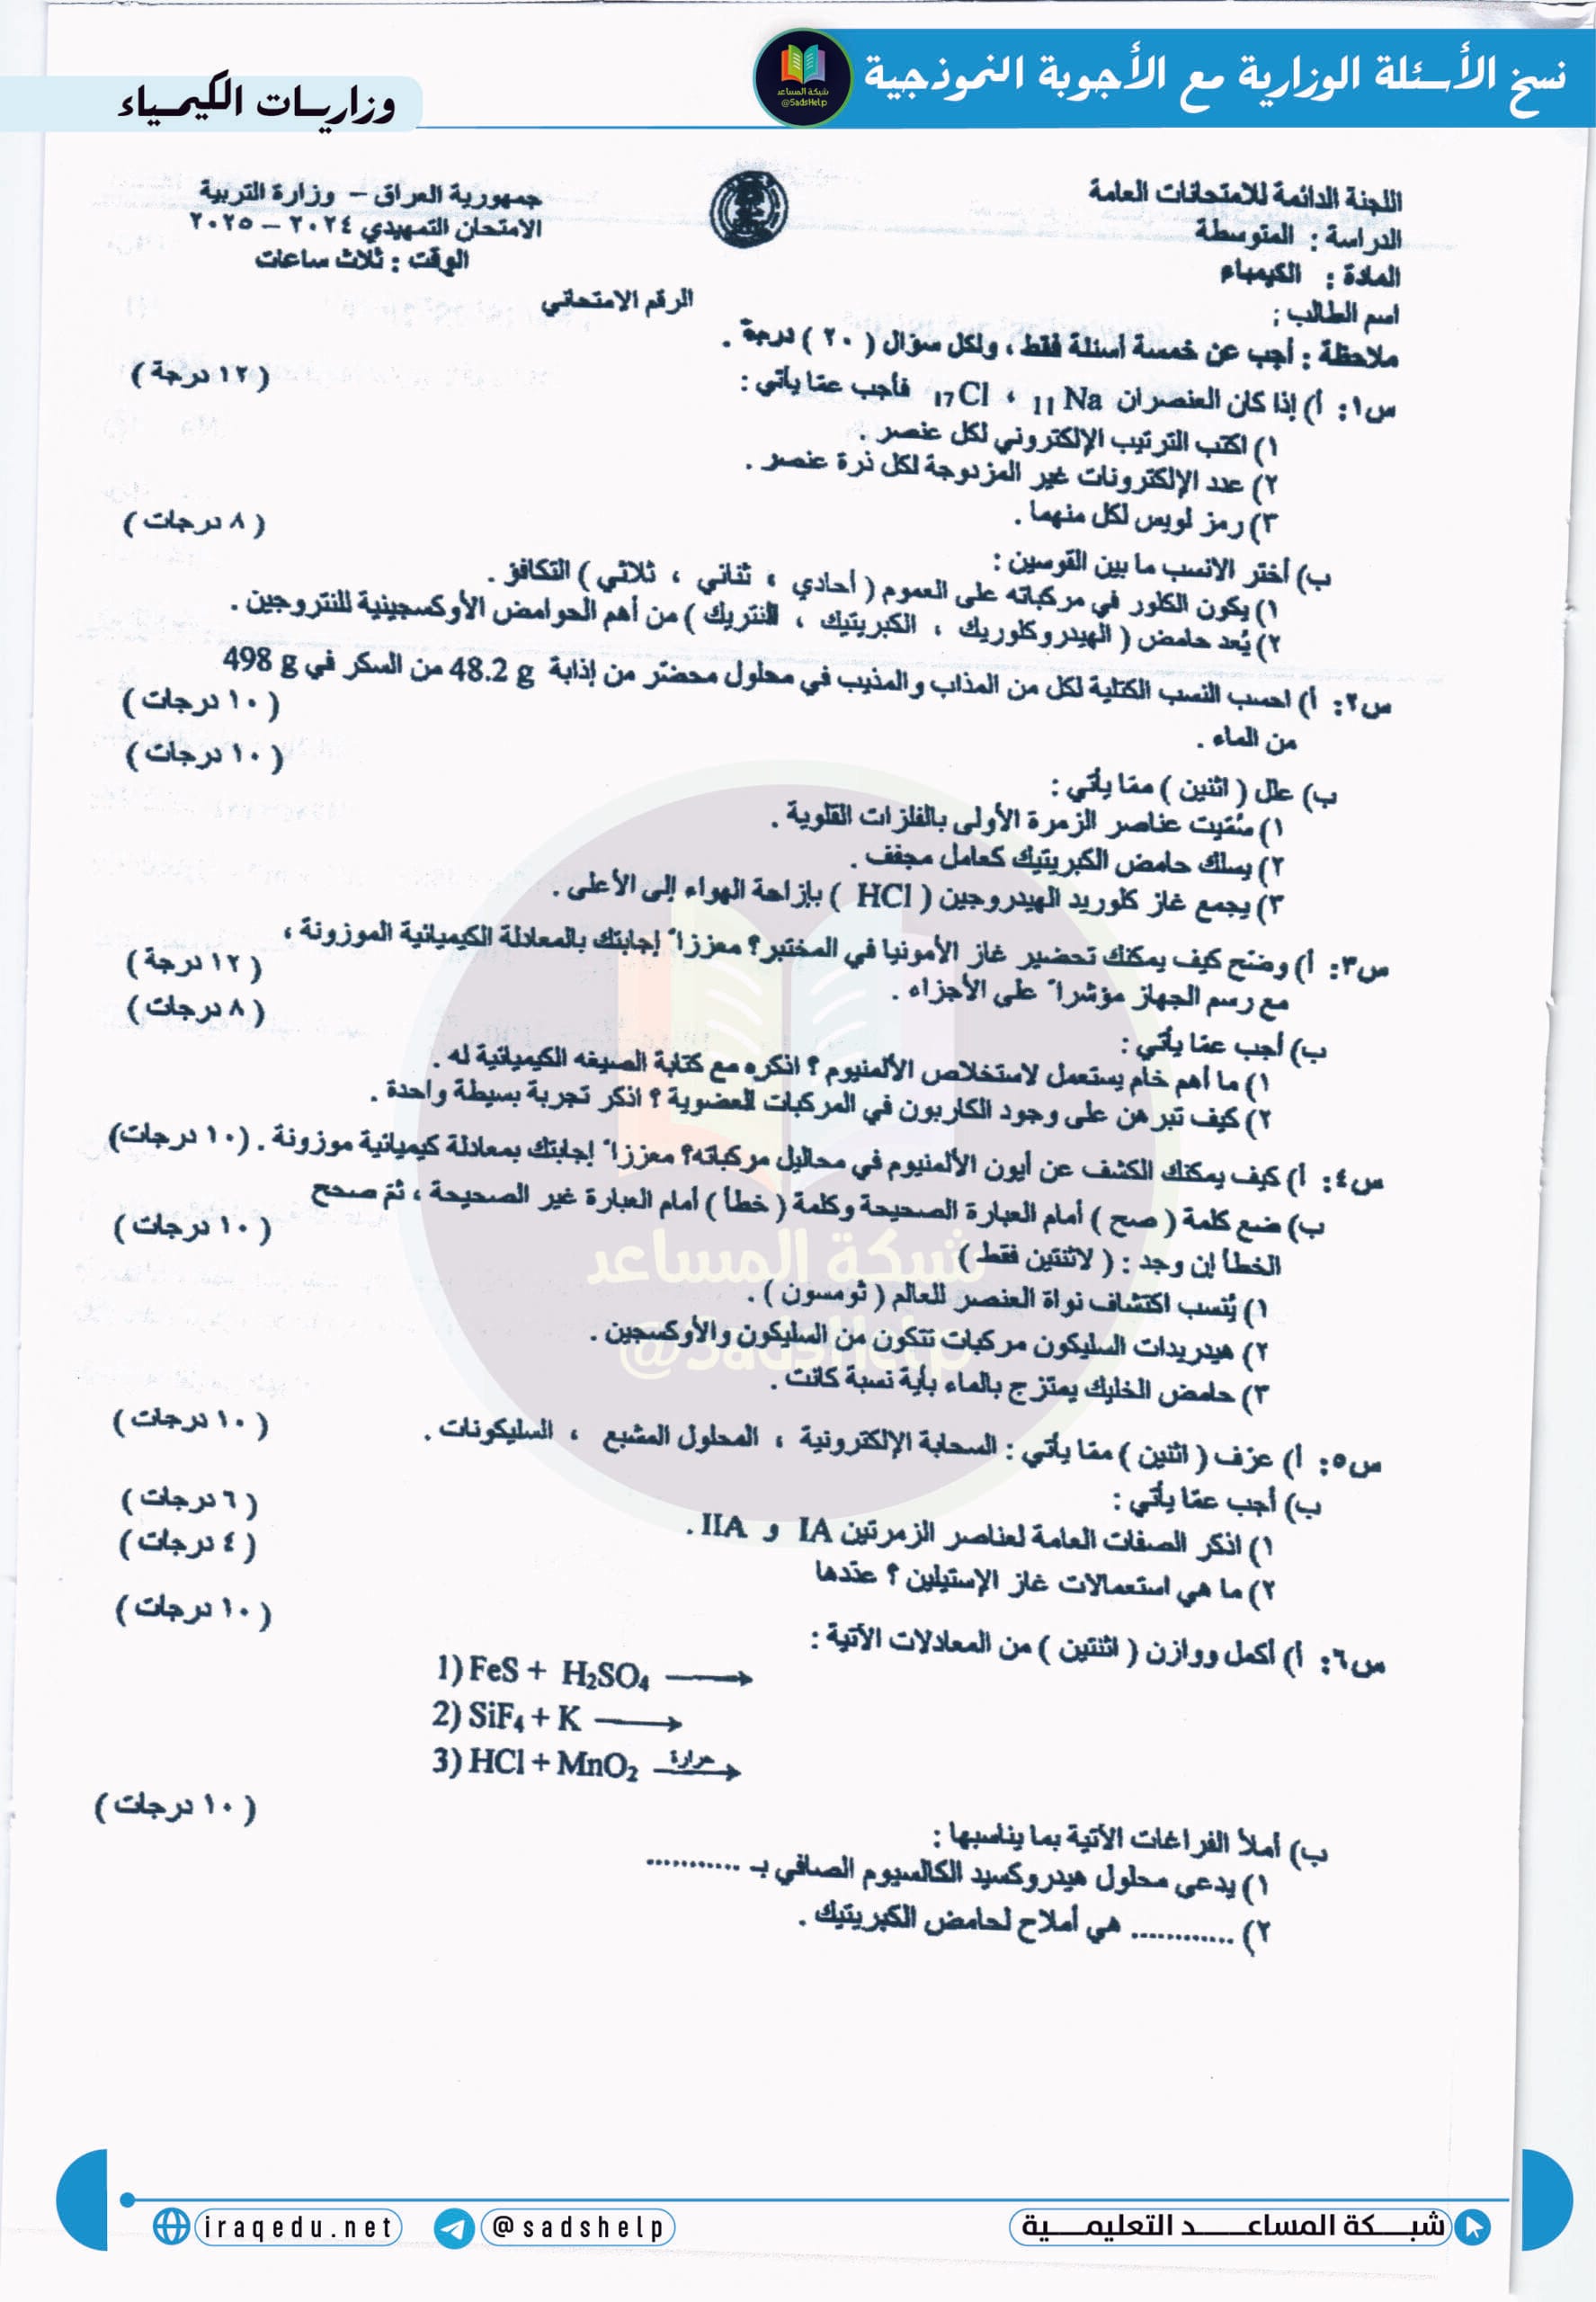 نسخ الأسئلة الوزارية مع الأجوبة النموذجية
شبكة المساعد
@SadsHelp
وزاريات الكيمياء
اللجنة الدائمة للامتحانات العامة
الدراسة : المتوسطة
المادة : الكيمياء
اسم الطالب :
جمهورية العراق – وزارة التربية
الامتحان التمهيدي ٢٠٢٤ – ٢٠٢٥
الوقت : ثلاث ساعات
الرقم الامتحاني
ملاحظة : أجب عن خمسة أسئلة فقط ، ولكل سؤال ( ٢٠ ) درجة .
س١: أ) إذا كان العنصران ₁₁Na ، ₁₇Cl فأجب عمّا يأتي : ( ١٢ درجة )
١) اكتب الترتيب الإلكتروني لكل عنصر .
٢) عدد الإلكترونات غير المزدوجة لكل ذرة عنصر .
٣) رمز لويس لكل منهما .
ب) أختر الانسب ما بين القوسين : ( ٨ درجات )
١) يكون الكلور في مركباته على العموم ( أحادي ، ثنائي ، ثلاثي ) التكافؤ .
٢) يُعد حامض ( الهيدروكلوريك ، الكبريتيك ، النتريك ) من أهم الحوامض الأوكسجينية للنتروجين .
س٢: أ) احسب النسب الكتلية لكل من المذاب والمذيب في محلول محضّر من إذابة 48.2 g من السكر في 498 g
من الماء . ( ١٠ درجات )
ب) علل ( اثنين ) ممّا يأتي : ( ١٠ درجات )
١) سُمّيت عناصر الزمرة الأولى بالفلزات القلوية .
٢) يسلك حامض الكبريتيك كعامل مجفف .
٣) يجمع غاز كلوريد الهيدروجين ( HCl ) بإزاحة الهواء إلى الأعلى .
س٣: أ) وضّح كيف يمكنك تحضير غاز الأمونيا في المختبر؟ معززاً إجابتك بالمعادلة الكيميائية الموزونة ،
مع رسم الجهاز مؤشراً على الأجزاء . ( ١٢ درجة )
ب) أجب عمّا يأتي : ( ٨ درجات )
١) ما أهم خام يستعمل لاستخلاص الألمنيوم ؟ اذكره مع كتابة الصيغه الكيميائية له .
٢) كيف تبرهن على وجود الكاربون في المركبات العضوية ؟ اذكر تجربة بسيطة واحدة .
س٤: أ) كيف يمكنك الكشف عن أيون الألمنيوم في محاليل مركباته؟ معززاً إجابتك بمعادلة كيميائية موزونة . (١٠ درجات)
ب) ضع كلمة ( صح ) أمام العبارة الصحيحة وكلمة ( خطأ ) أمام العبارة غير الصحيحة ، ثمّ صحح
الخطأ إن وجد : ( لاثنتين فقط ) ( ١٠ درجات )
١) يُنسب اكتشاف نواة العنصر للعالم ( ثومسون ) .
٢) هيدريدات السليكون مركبات تتكون من السليكون والأوكسجين .
٣) حامض الخليك يمتزج بالماء بأية نسبة كانت .
س٥: أ) عرّف ( اثنين ) ممّا يأتي : السحابة الإلكترونية ، المحلول المشبع ، السليكونات . ( ١٠ درجات )
ب) أجب عمّا يأتي :
١) اذكر الصفات العامة لعناصر الزمرتين IA و IIA . ( ٦ درجات )
٢) ما هي استعمالات غاز الإستيلين ؟ عدّدها ( ٤ درجات )
س٦: أ) أكمل ووازن ( اثنتين ) من المعادلات الآتية : ( ١٠ درجات )
1) FeS + H₂SO₄ ⟶
2) SiF₄ + K ⟶
3) HCl + MnO₂ حرارة ⟶
ب) أملأ الفراغات الآتية بما يناسبها : ( ١٠ درجات )
١) يدعى محلول هيدروكسيد الكالسيوم الصافي بـ ...........
٢) ............ هي أملاح لحامض الكبريتيك .
شبكة المساعد
@SadsHelp
iraqedu.net
@sadshelp
شبـــكة المساعــــد التعليميــــة